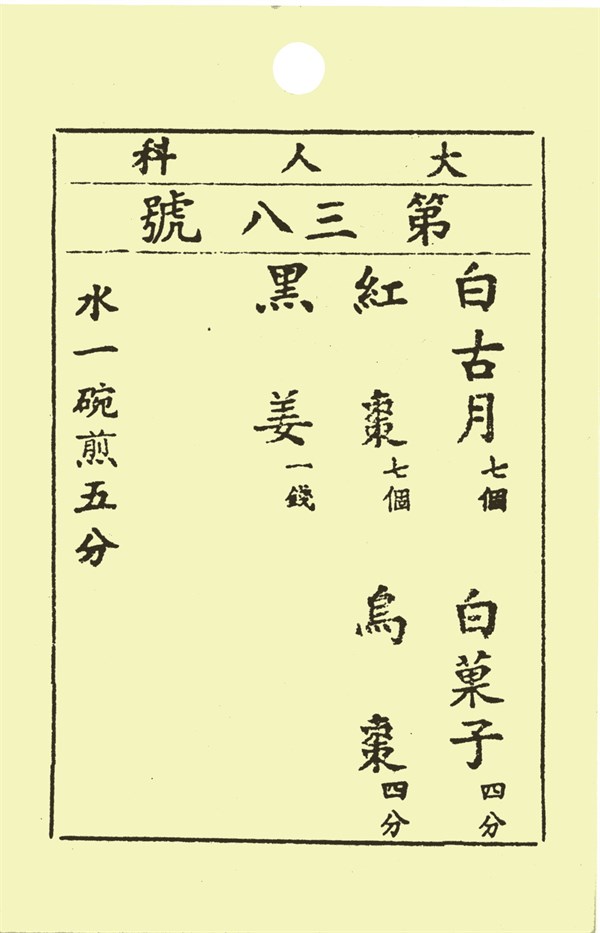 大人科
第三八號
白古月七個 白菓子四分
紅棗七個 烏棗四分
黑姜一錢
水一碗煎五分